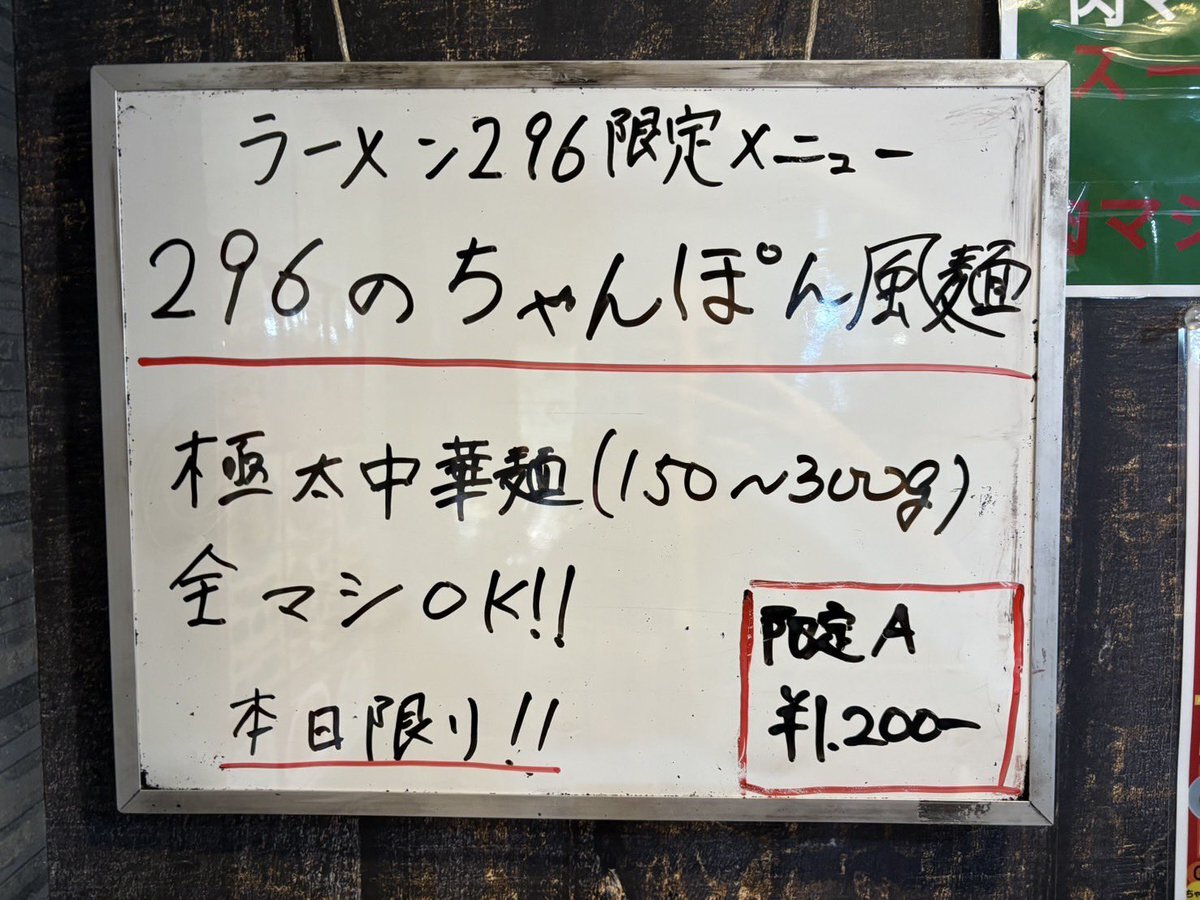 ラーメン296限定メニュー
296のちゃんぽん風麺
極太中華麺(150~300g)
全マシOK!!
本日限り!!
限定A
¥1.200-
肉マ
スー
肉マシ